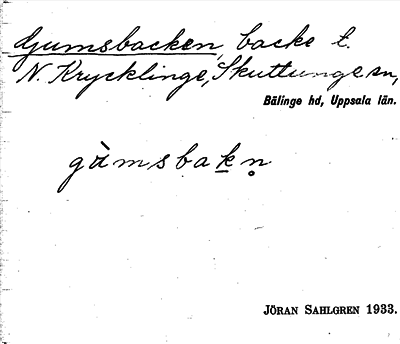 Gumsbacken, backe t.
N. Krycklinge, Skuttunge sn,
Bälinge hd, Uppsala län.
gùmsbakn̥
JÖRAN SAHLGREN 1933.